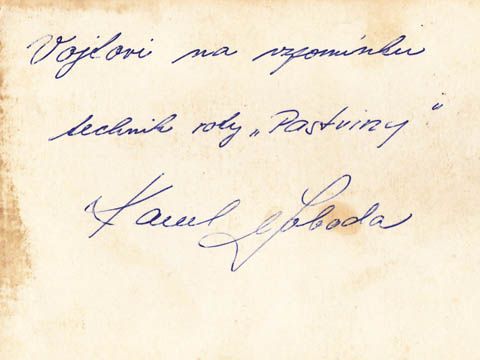 Vojtovi na vzpomínku
technik roty „Pastviny"
Karel Svoboda